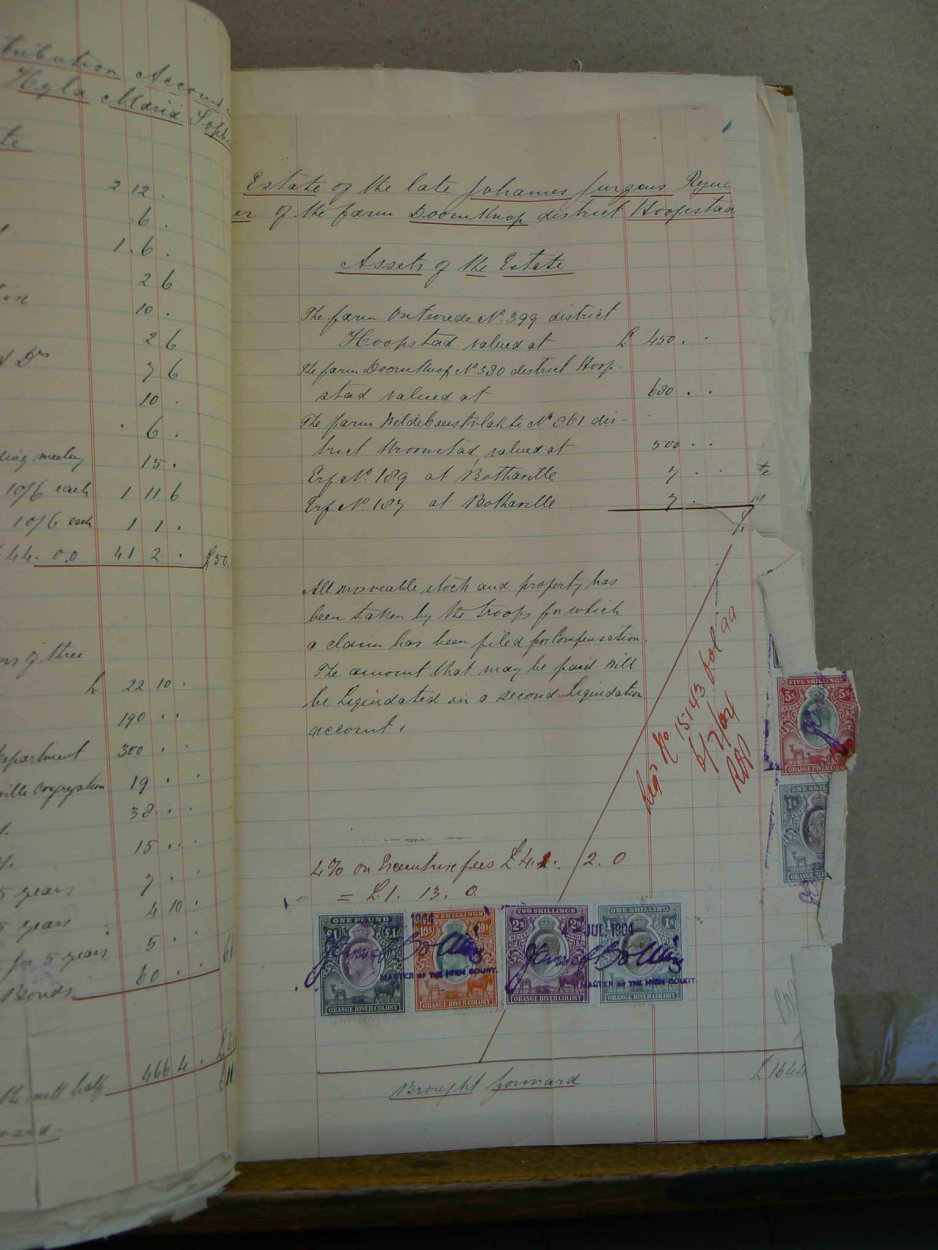 tribution Account
Hegla Maria Soph
te
2 12 .
. 6 .
1 . 6 .
2 6
10 .
2 6
7 6
10 .
6 .
ding meeting 15 .
10/6 each 1 11 6
10/6 each 1 1 .
44. 0.0 41 2 . £50
ors of three
£ 22 10 .
190 . .
epartment 300 . .
ville congregation 19 . .
38 . .
15 . .
5 years 7 . .
5 years 4 10 .
for 5 years 5 . .
Bonds 60 . .
the nett half 466 4 .
Estate of the late Johannes Jurgens
er of the farm Doornknop district Hoopstad
Assets of the Estate
The farm Ontevrede No. 399 district
Hoopstad valued at £ 450 . .
The farm Doornknop No 380 district Hoop-
stad valued at 680 . .
The farm Weldebeestvlakte No 261 dis-
trict Kroonstad, valued at 500 . .
Erf No. 189 at Bothaville 7 . .
Erf No. 187 at Bothaville 7 . .
All moveable stock and property has
been taken by the troops for which
a claim has been filed for Compensation.
The amount that may be paid will
be Liquidated in a second Liquidation
account.
15143
5/7/04
4% on Executrix fees £41. 2. 0
= £1. 13. 0
ONE POUND
£1 £1
ORANGE RIVER COLONY
1904
TEN SHILLINGS
10s 10s
ORANGE RIVER COLONY
MASTER OF THE HIGH COURT.
TWO SHILLINGS
2s 2s
ORANGE RIVER COLONY
JUL 1904
ONE SHILLING
1s 1s
ORANGE RIVER COLONY
MASTER OF THE HIGH COURT.
FIVE SHILLINGS
5s 5s
ORANGE RIVER COLONY
ONE SHIL
1s
ORANGE
Brought forward £1644